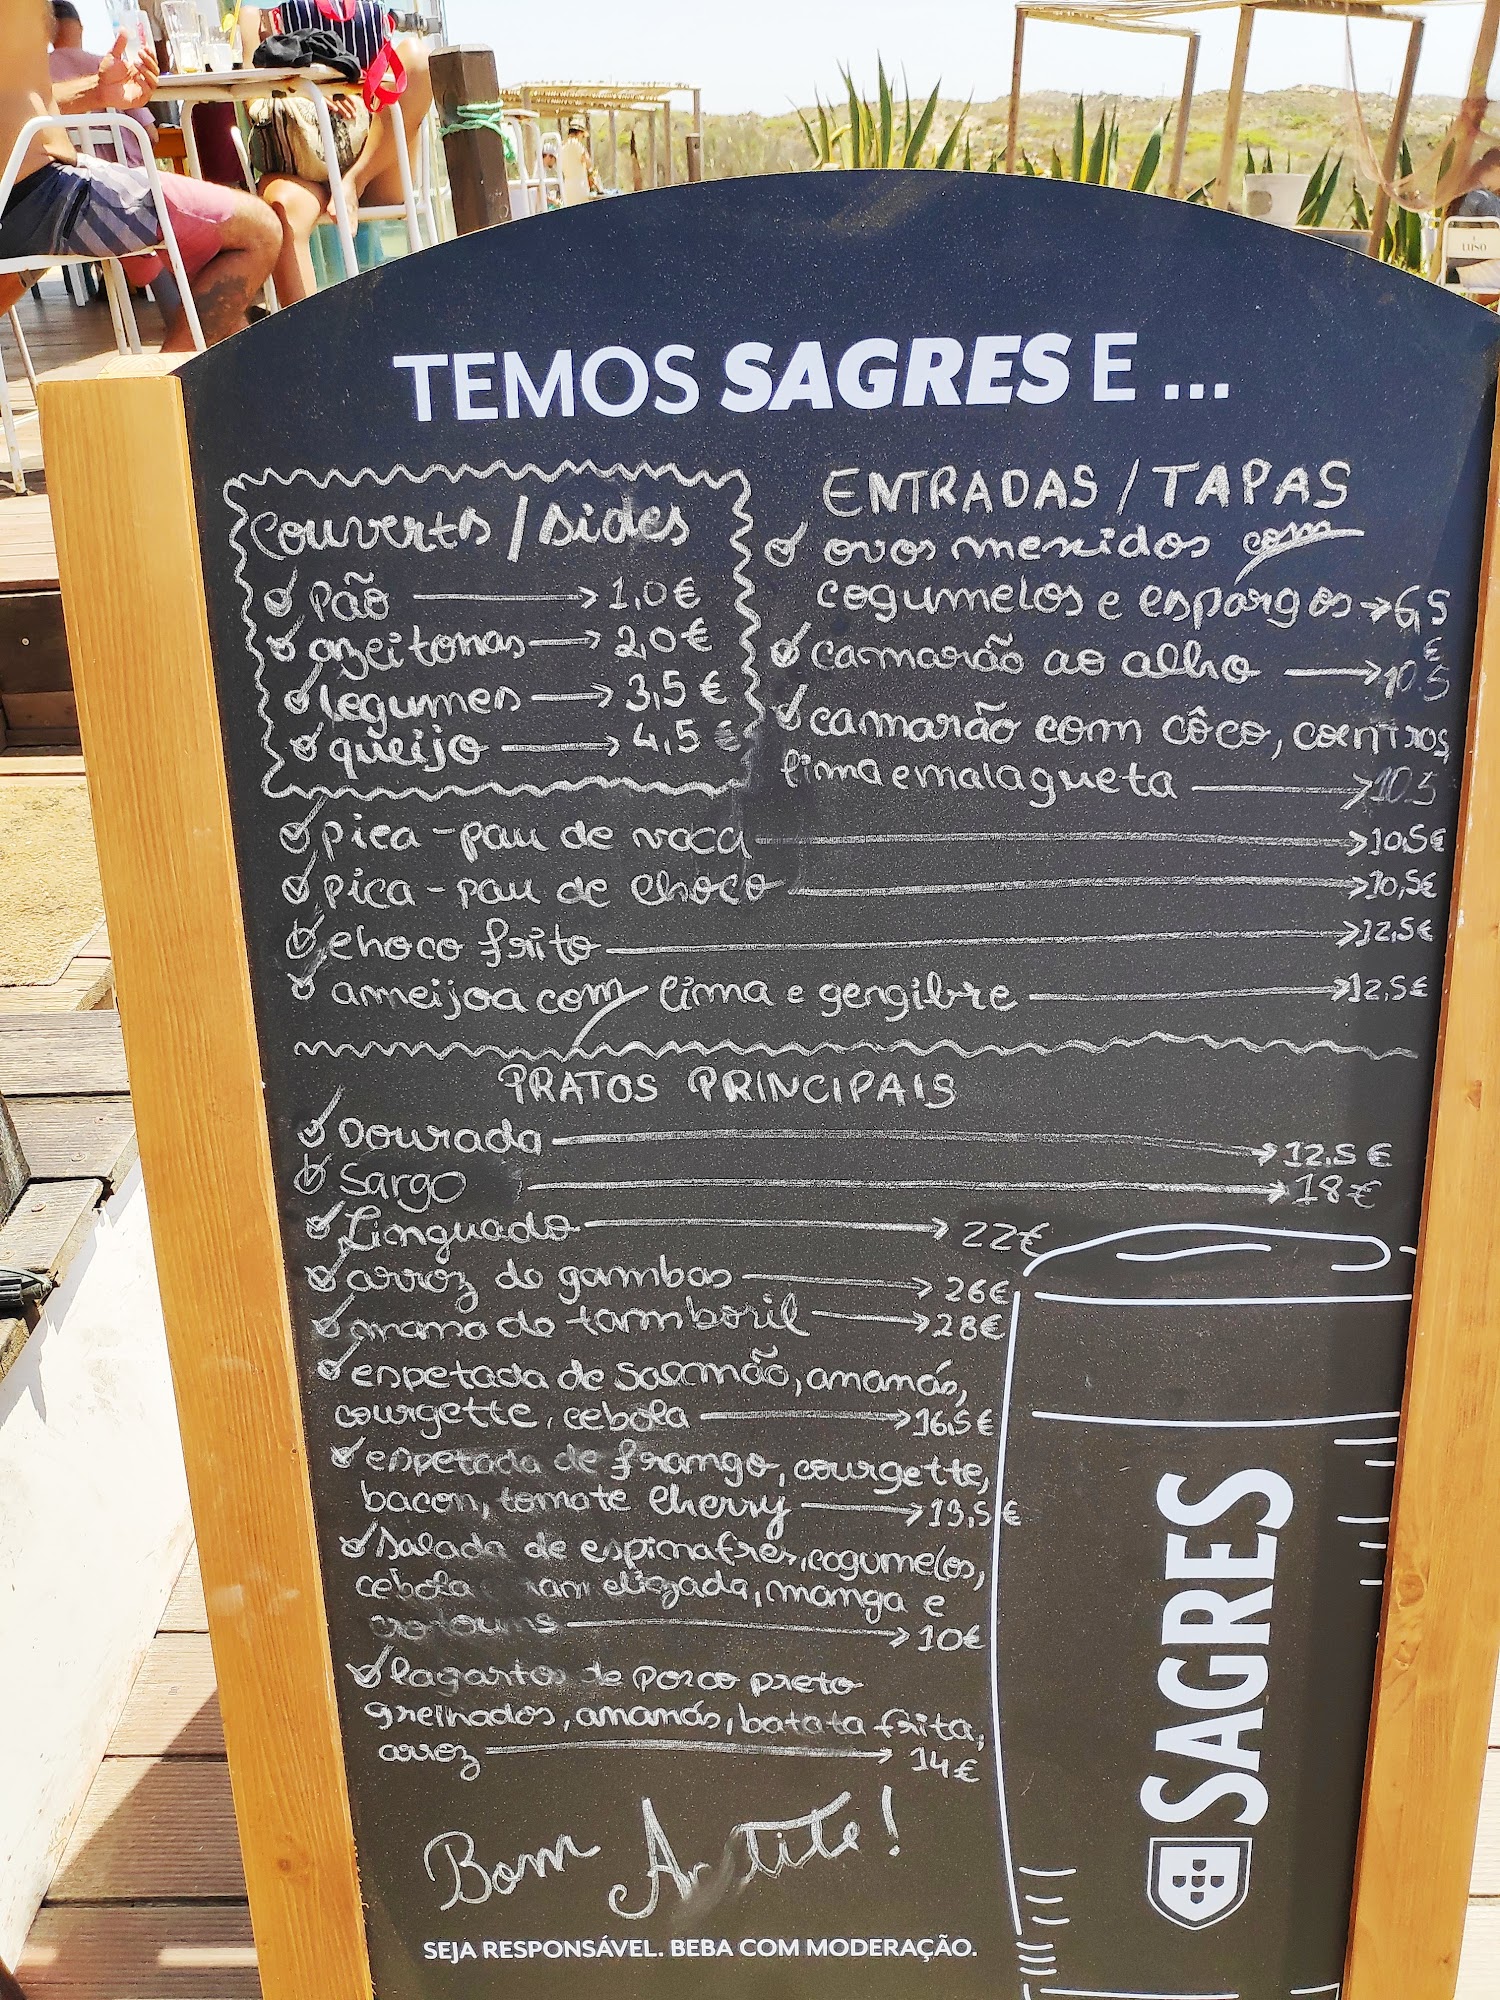 TEMOS SAGRES E ...
Couverts / sides
Pão 1,0€
azeitonas 2,0€
legumes 3,5€
queijo 4,5€
ENTRADAS / TAPAS
ovos mexidos com
cogumelos e espargos 6,5
€
camarão ao alho 10.5
camarão com côco, coentros,
lima e malagueta 10.5
pica-pau de vaca 10,5€
pica-pau de choco 10,5€
choco frito 12,5€
ameijoa com lima e gengibre 12,5€
PRATOS PRINCIPAIS
Dourada 12,5€
Sargo 18€
Linguado 22€
arroz de gambas 26€
massa de tamboril 28€
espetada de salmão, ananás,
courgette, cebola 16,5€
espetada de frango, courgette,
bacon, tomate cherry 13,5€
Salada de espinafres, cogumelos,
cebola manga e
10€
lagartos de porco preto
grelhados, ananás, batata frita,
arroz 14€
Bom
SEJA RESPONSÁVEL. BEBA COM MODERAÇÃO.
SAGRES
LUSO